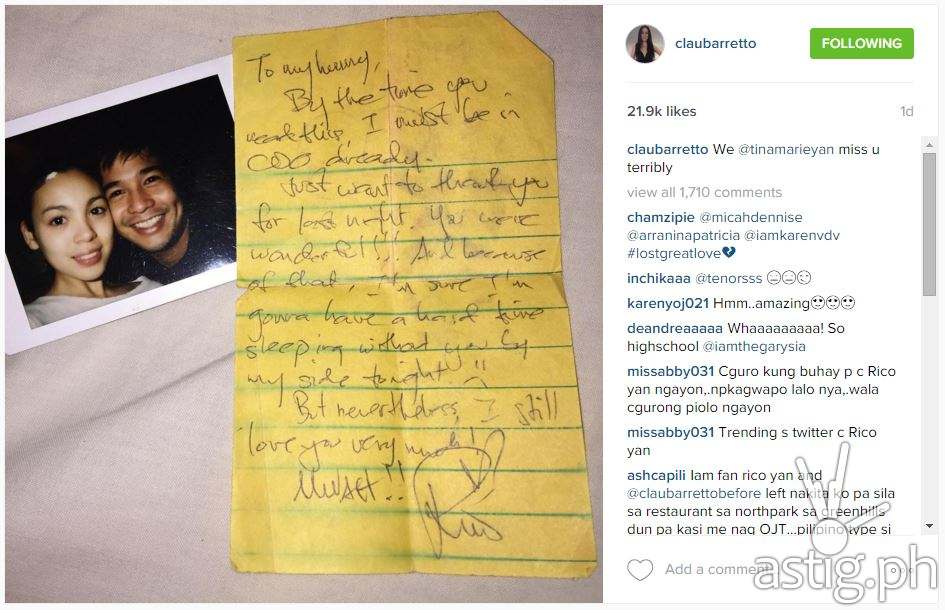 To my hunny,
By the time you
read this, I must be in
CDO already.
Just want to thank you
for last night. You were
wonderful!!! And because
of that, I'm sure I'm
gonna have a hard time
sleeping without you by
my side tonight!
But nevertheless, I still
love you very much!
Rico
claubarretto
FOLLOWING
21.9k likes
1d
claubarretto We @tinamarieyan miss u
terribly
view all 1,710 comments
chamzipie @micahdennise
@arraninapatricia @iamkarenvdv
#lostgreatlove💔
inchikaaa @tenorsss
karenyoj021 Hmm..amazing
deandreaaaaa Whaaaaaaaaa! So
highschool @iamthegarysia
missabby031 Cguro kung buhay p c Rico
yan ngayon,.npkagwapo lalo nya,.wala
cgurong piolo ngayon
missabby031 Trending s twitter c Rico
yan
ashcapili Iam fan rico yan and
@claubarrettobefore left nakita ko pa sila
sa restaurant sa northpark sa greenhills
dun pa kasi me nag OJT...pilipino type si
Add a comment
astig.ph